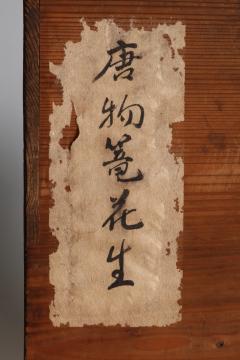 唐物籠花生